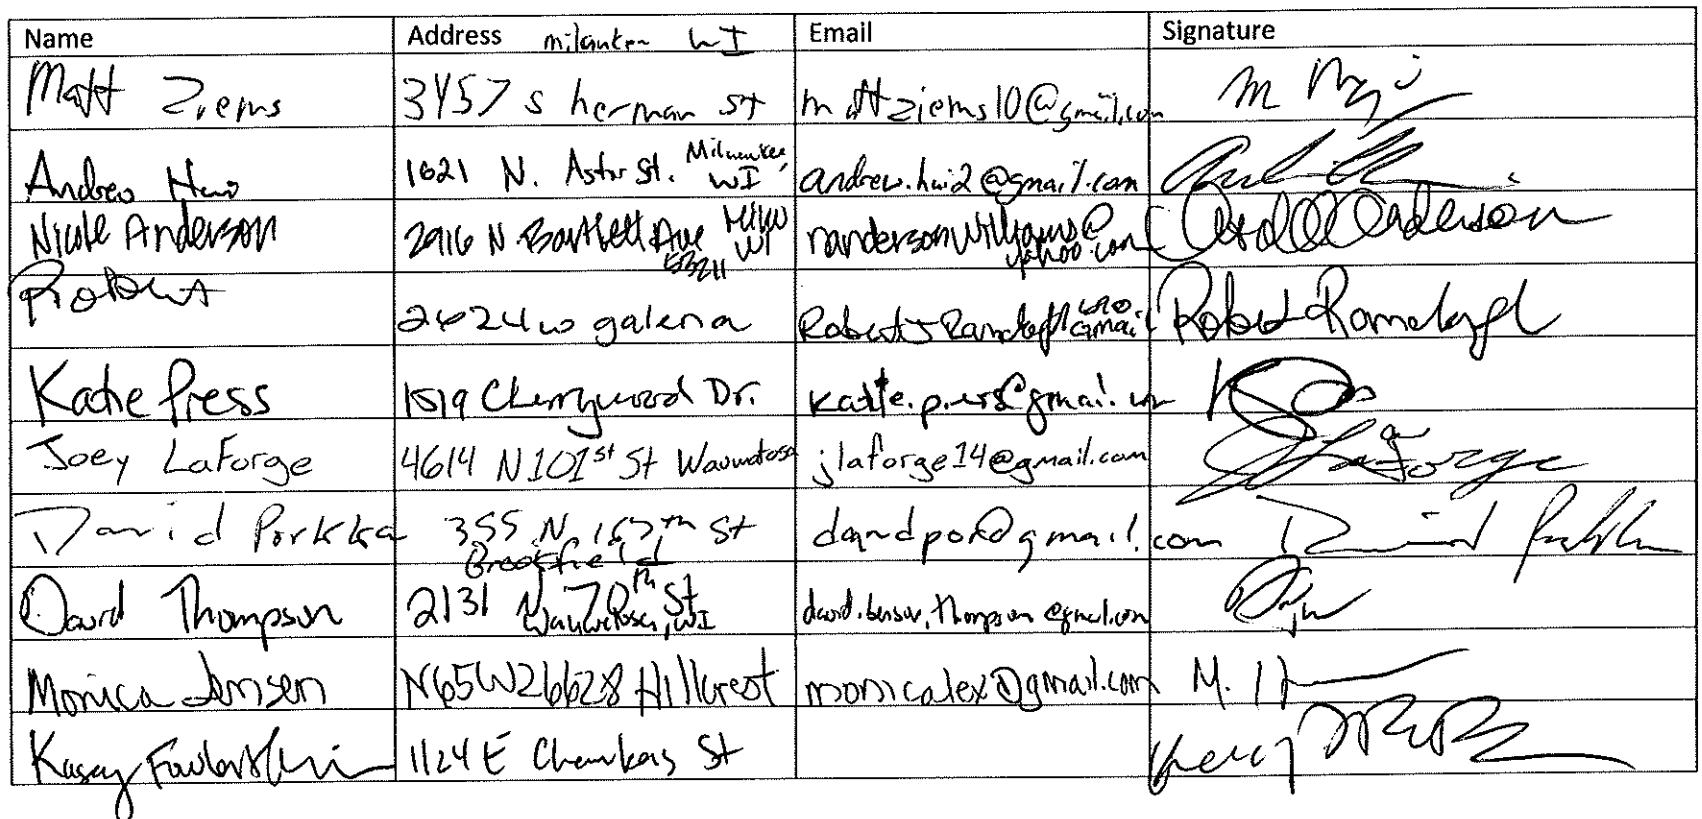 Name Address milwaukee WI Email Signature
Matt Ziems 3457 s herman st mattziems10@gmail.com
Andrew Hui 1621 N. Astor St. Milwaukee, WI andrew.hui2@gmail.com
Nicole Anderson 2916 N. Bartlett Ave Milw WI 53211 nandersonwilliams@yahoo.com Anderson
Robert 2424 w galena Robert Gmail Robert
Katie Press 1519 Cherrywood Dr.
Joey LaForge 4614 N 101st St Wauwatosa jlaforge14@gmail.com LaForge
David Porkka 355 N. 167th St Brookfield dandpor@gmail.com David
David Thompson 2131 N 70th St Wauwatosa, WI david.benson.thompson@gmail.com
Monica Jensen N65W26628 Hillcrest monicalex@gmail.com M.
Kasey 1124 E Chambers St